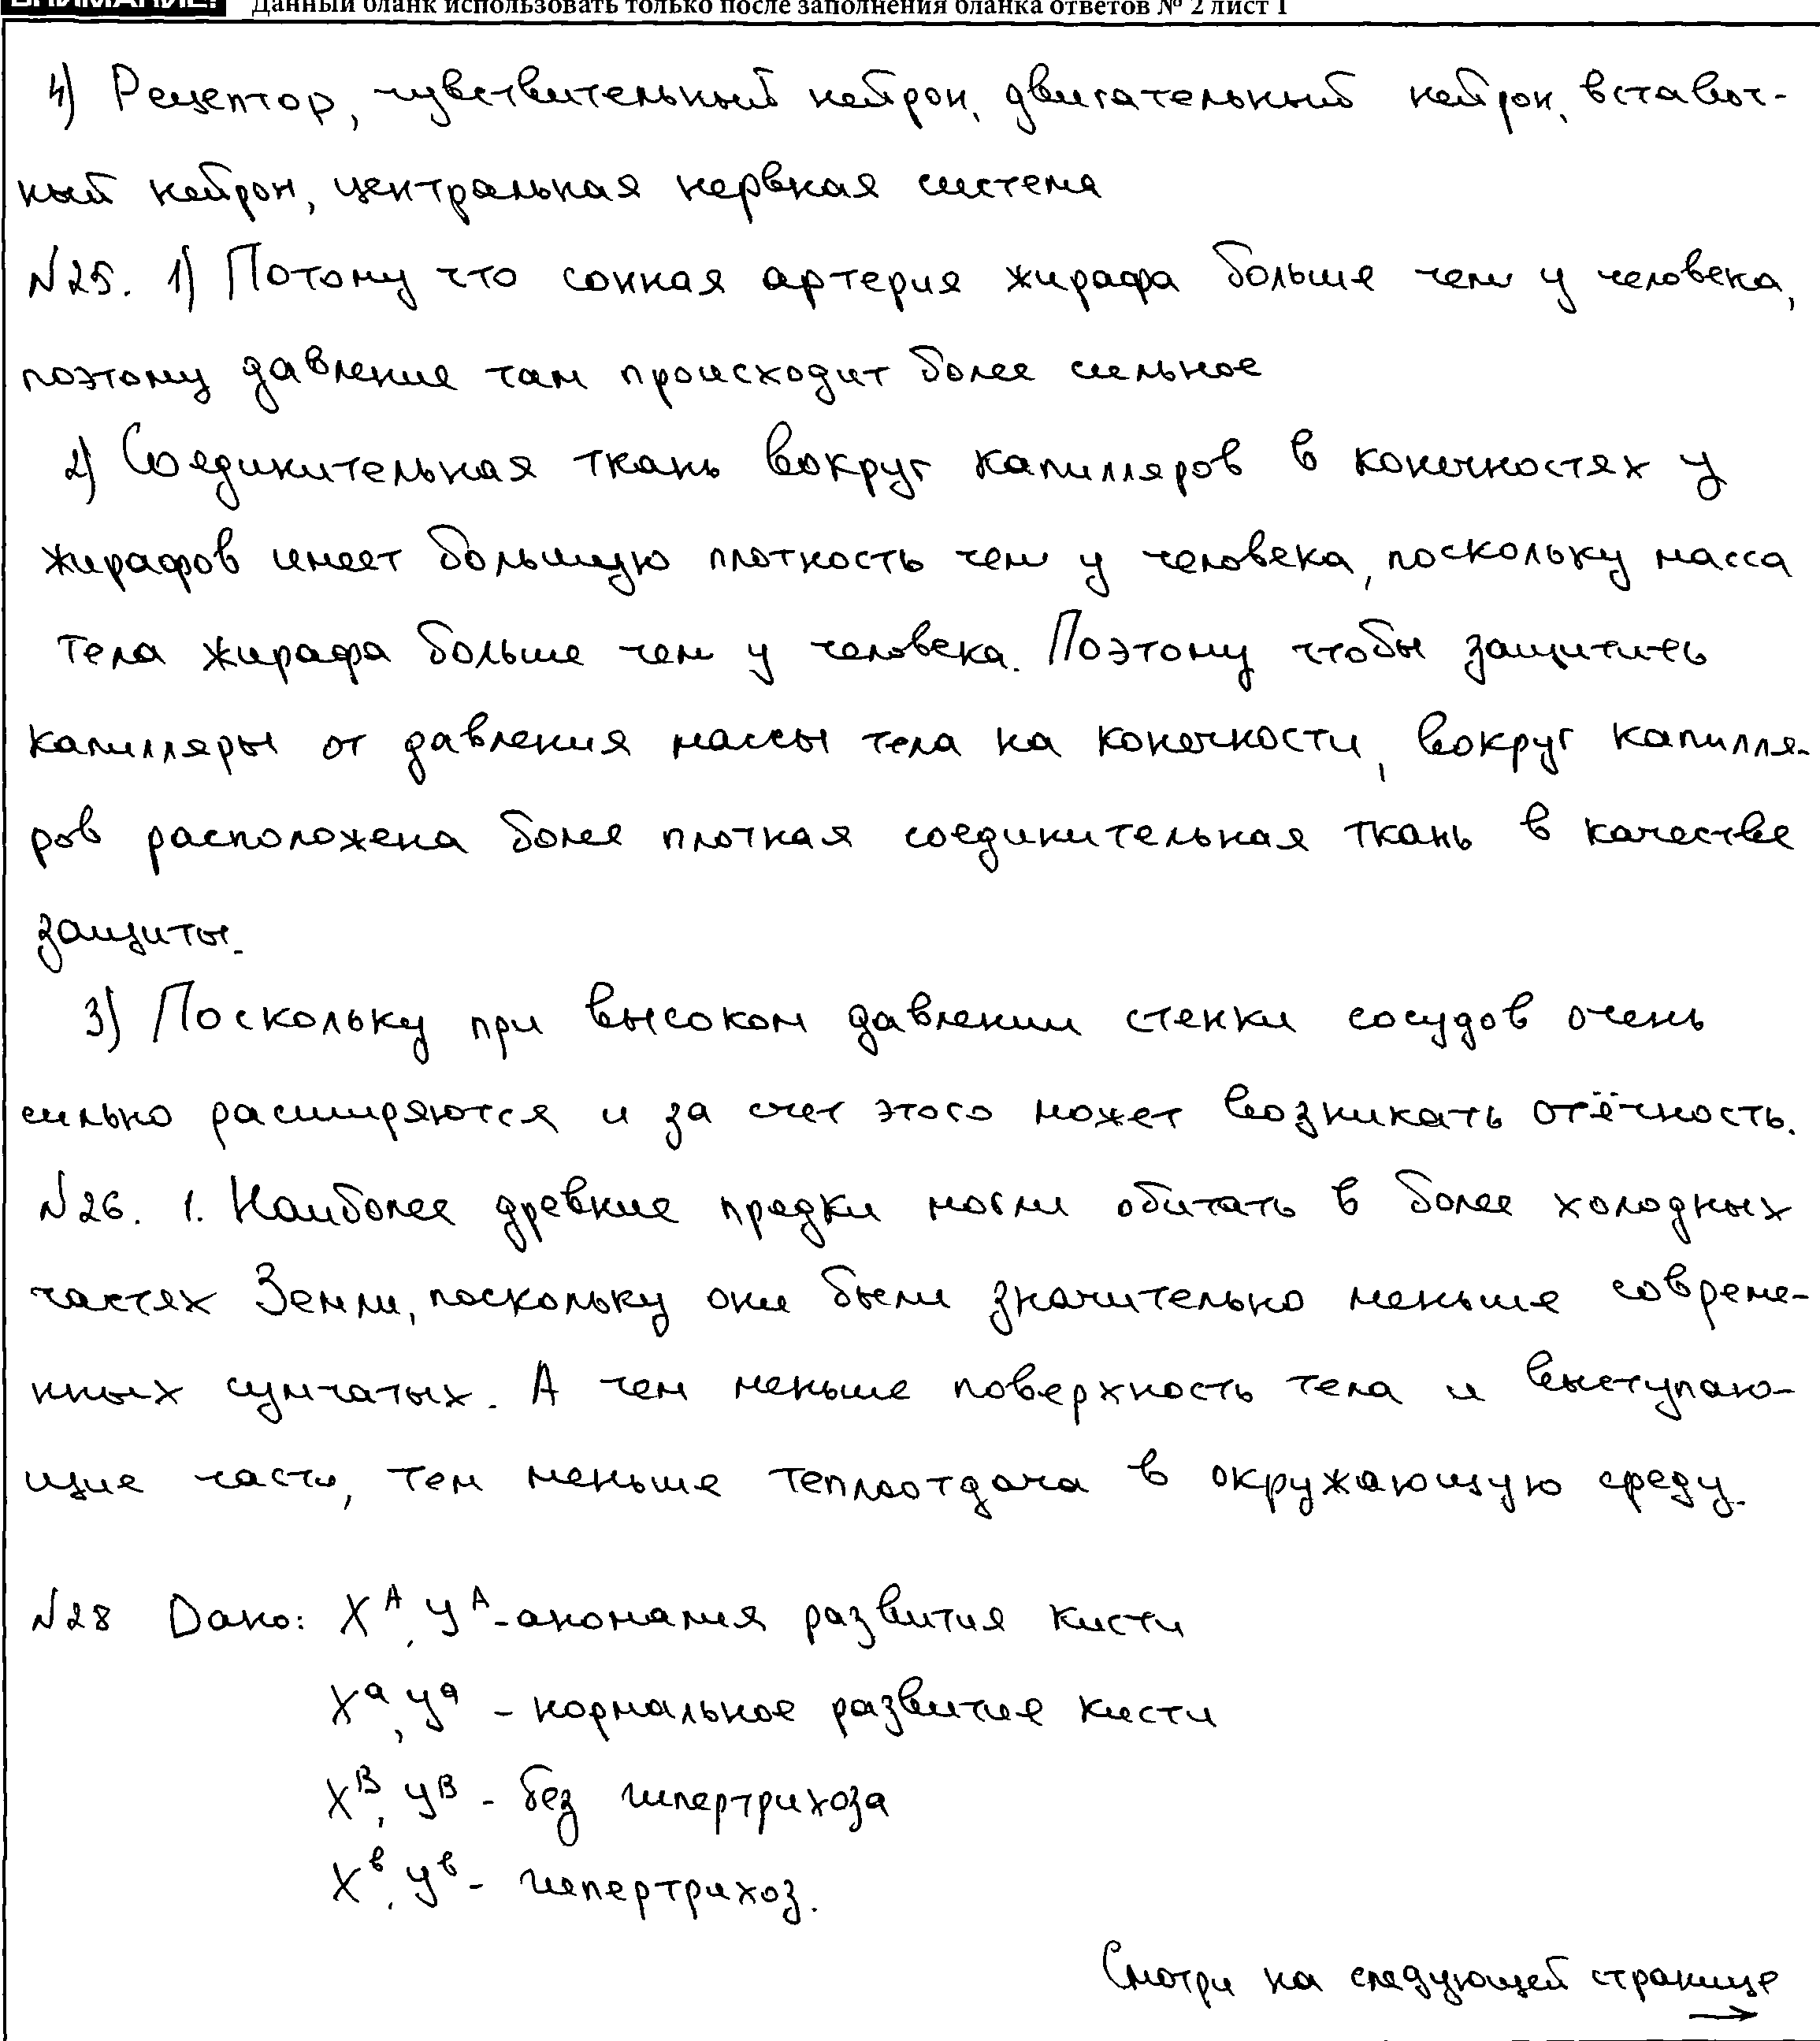 ВНИМАНИЕ! Данный бланк использовать только после заполнения бланка ответов № 2 лист 1
4) Рецептор, чувствительный нейрон, двигательный нейрон, вставоч-
ный нейрон, центральная нервная система
№25. 1) Потому что сонная артерия жирафа больше чем у человека,
поэтому давление там происходит более сильное
2) Соединительная ткань вокруг капилляров в конечностях у
жирафов имеет большую плотность чем у человека, поскольку масса
тела жирафа больше чем у человека. Поэтому чтобы защитить
капилляры от давления массы тела на конечности, вокруг капилля-
ров расположена более плотная соединительная ткань в качестве
защиты.
3) Поскольку при высоком давлении стенки сосудов очень
сильно расширяются и за счет этого может возникать отёчность.
№26. 1. Наиболее древние предки могли обитать в более холодных
частях Земли, поскольку они были значительно меньше совреме-
нных сумчатых. А чем меньше поверхность тела и выступаю-
щие части, тем меньше теплоотдача в окружающую среду.
№28 Дано: X^A, y^A - аномалия развития кисти
X^a, y^a - нормальное развитие кисти
X^B, y^B - без гипертрихоза
X^в, y^в - гипертрихоз.
Смотри на следующей странице
→